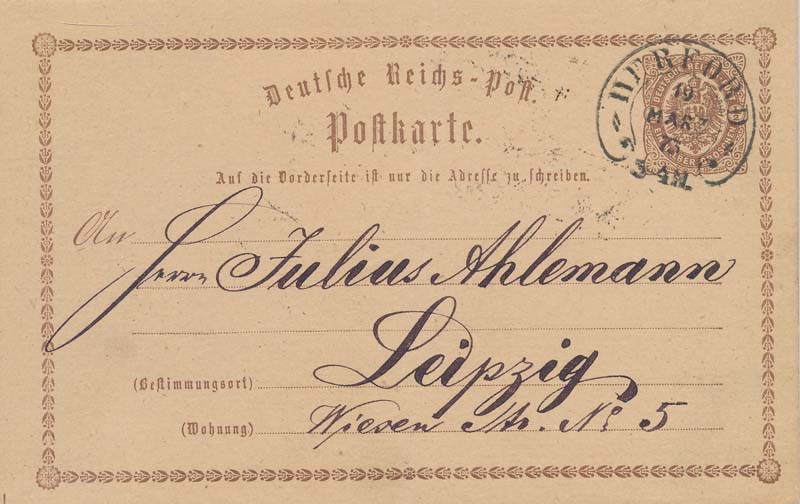 Deutsche Reichs-Post.
Postkarte.
HERFORD
19
MÄRZ
Auf die Vorderseite ist nur die Adresse zu schreiben.
An
Herrn Julius Ahlemann
Leipzig
(Bestimmungsort)
Wiesen Str. No 5
(Wohnung)